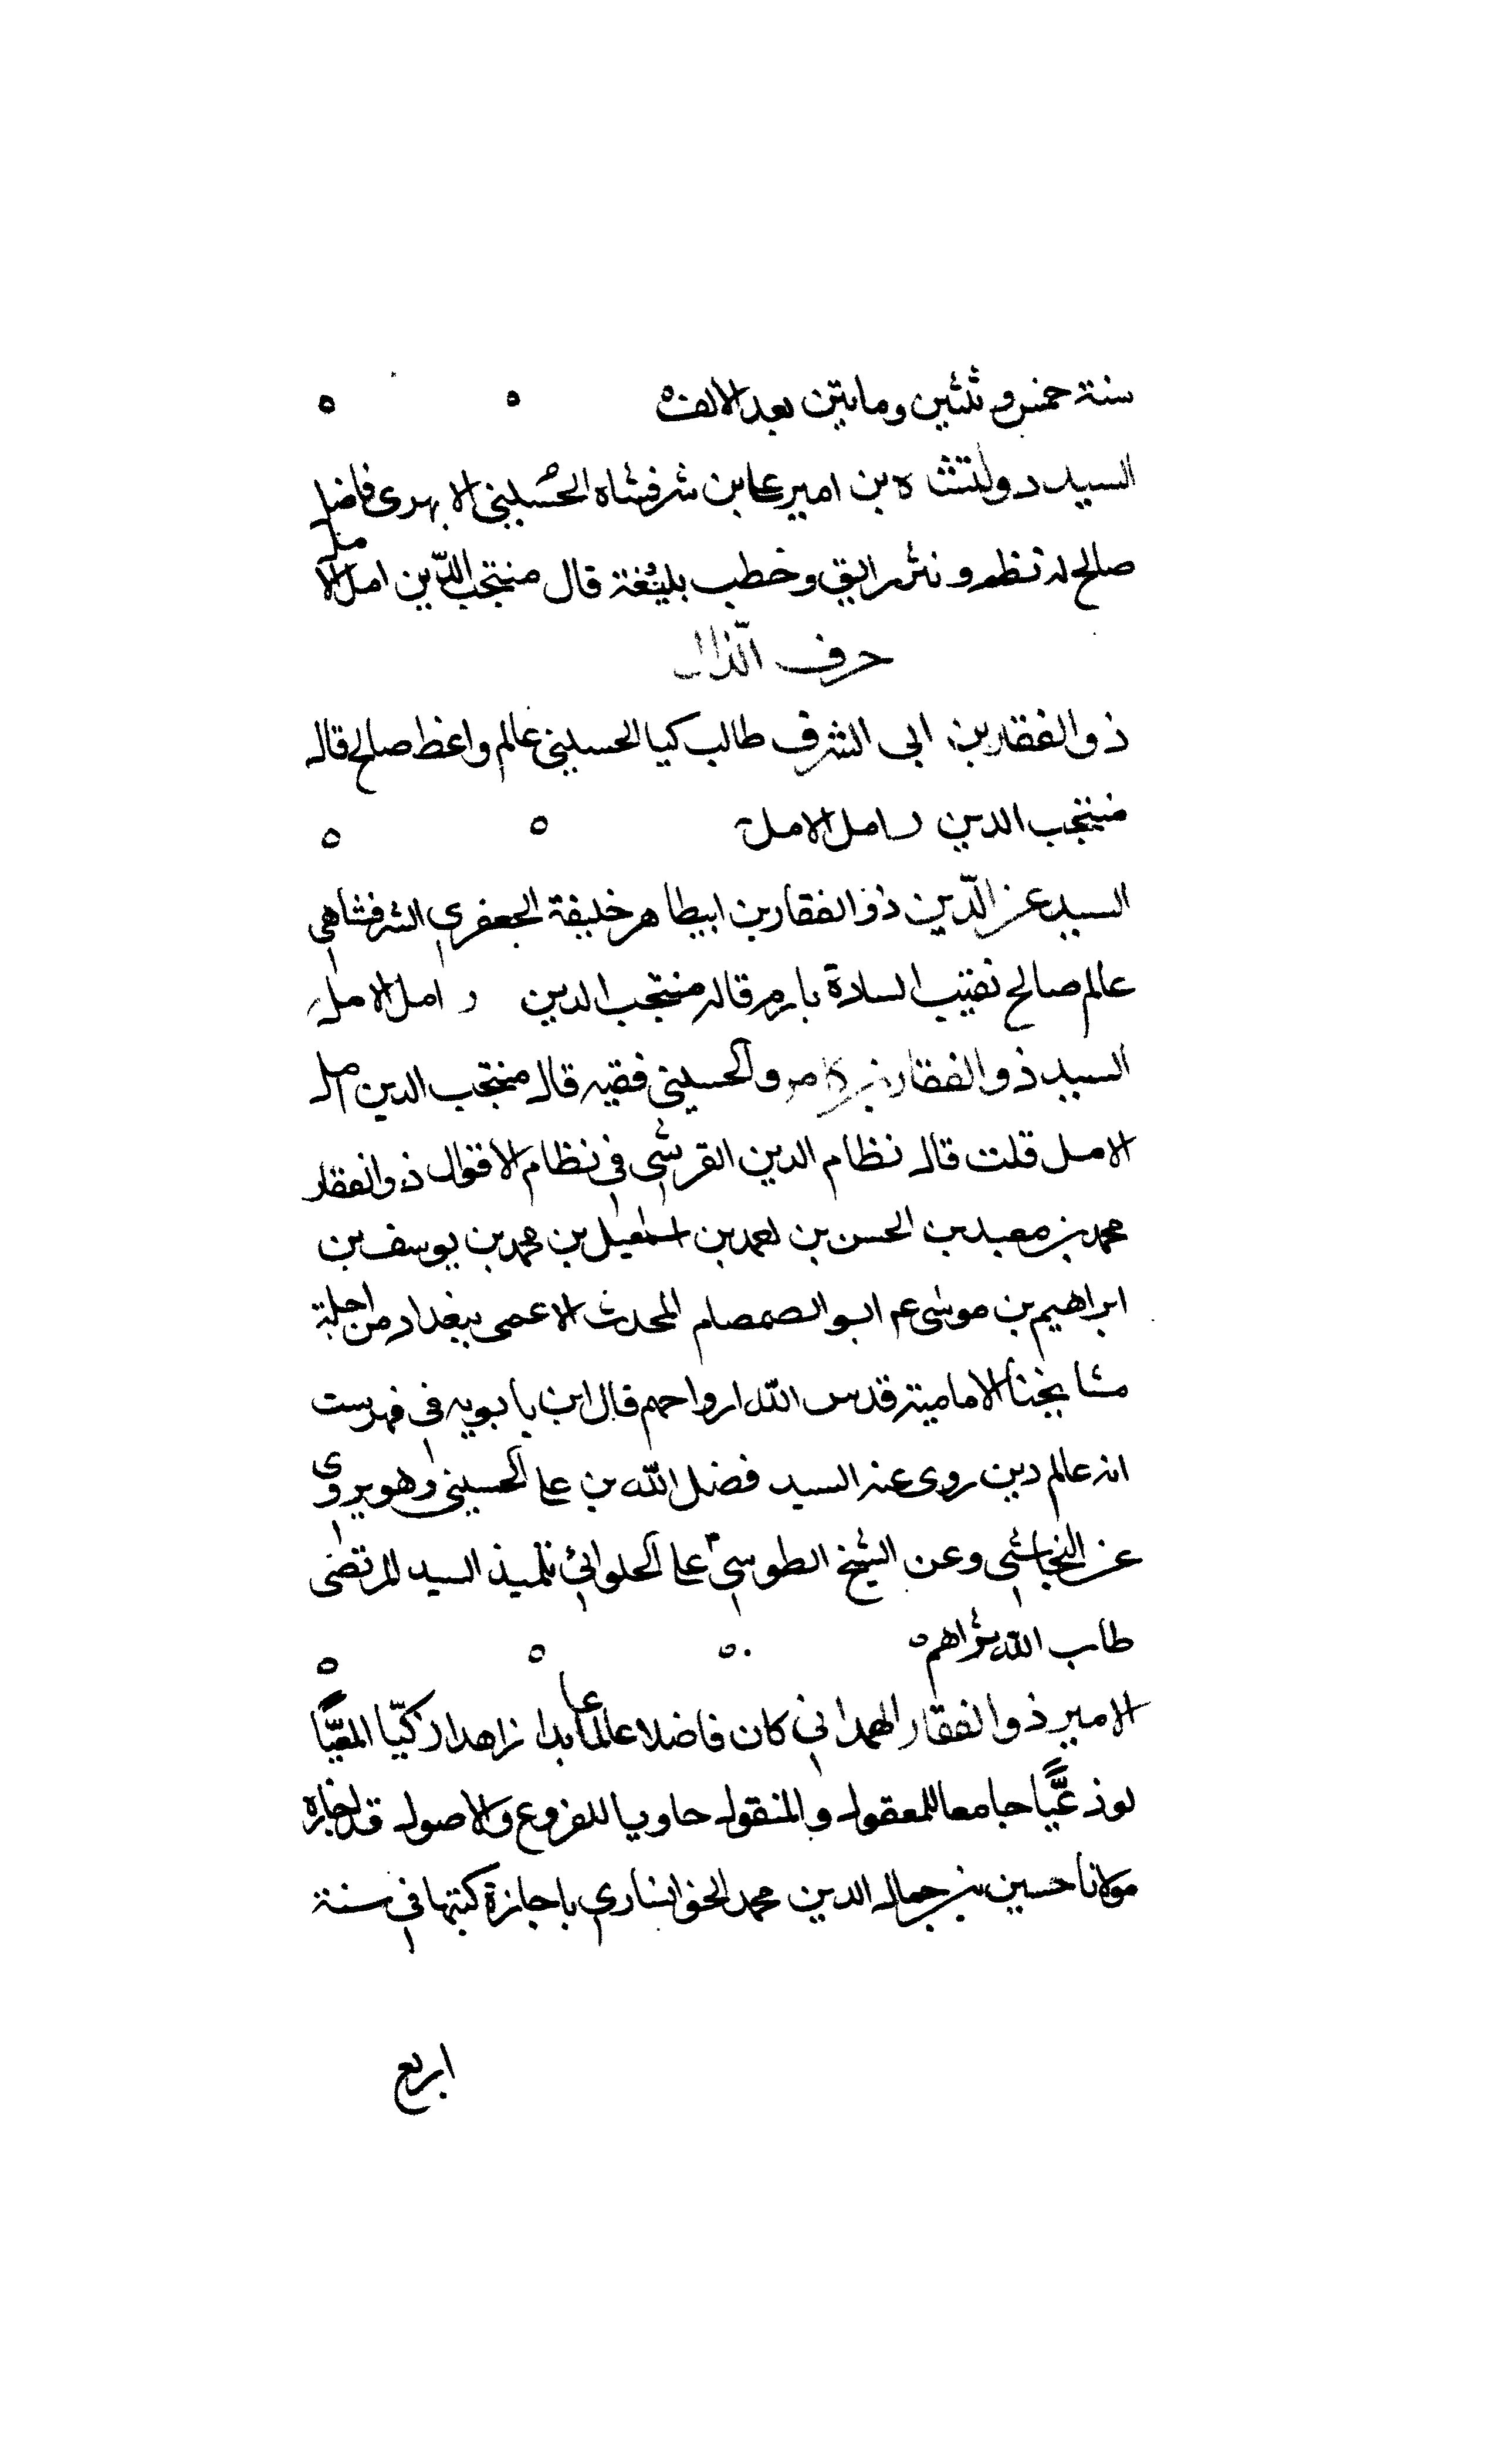 سنة خمس و ثلثين ومايتين بعد الالف ه ه ه
السيد دولتشاه بن امير علي بن شرفشاه الحسيني الابهري فاضل
صالح له نظم و نثر رايق وخطب بليغة قال منتجب الدّين امل الامل
حرف الذال
ذوالفقار بن ابى الشرف طالب كيا الحسيني عالم واعظ صالح قاله
منتجب الدين امل الامل ه ه
السيد عز الدّين ذوالفقار بن ابيطاهر خليفة الجعفري الشرفشاهي
عالم صالح نقيب السادة بارم قاله منتجب الدين امل الامل
السيد ذوالفقار بن كامرو الحسيني فقيه قاله منتجب الدين امل
الامل قلت قاله نظام الدين القرشي في نظام الاقوال ذوالفقار
محمد بن معبد بن الحسن بن احمد بن اسمعيل بن محمد بن يوسف بن
ابراهيم بن موسى عم ابو الصمصام المحدث الاعمى ببغداد من اجلة
مشايخنا الامامية قدس الله ارواحهم قال ابن بابويه في فهرست
انه عالم دين روى عنه السيد فضل الله بن على الحسيني وهو يروى
عن النجاشي وعن الشيخ الطوسي على الحلوائي تلميذ السيد المرتضى
طاب الله ثراهم ه ه ه ه
الامير ذوالفقار الهمداني كان فاضلا عالما عابدا زاهدا زكيّا المعيّا
لوذعيّا جامعا للمعقول والمنقول حاويا للفروع والاصول قد اجازه
مولانا حسين بن جمال الدين محمد الخوانساري باجازة كتبها في سنة
اربع